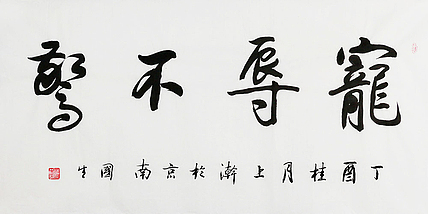 寵辱不驚
丁酉桂月上澣於京南國生